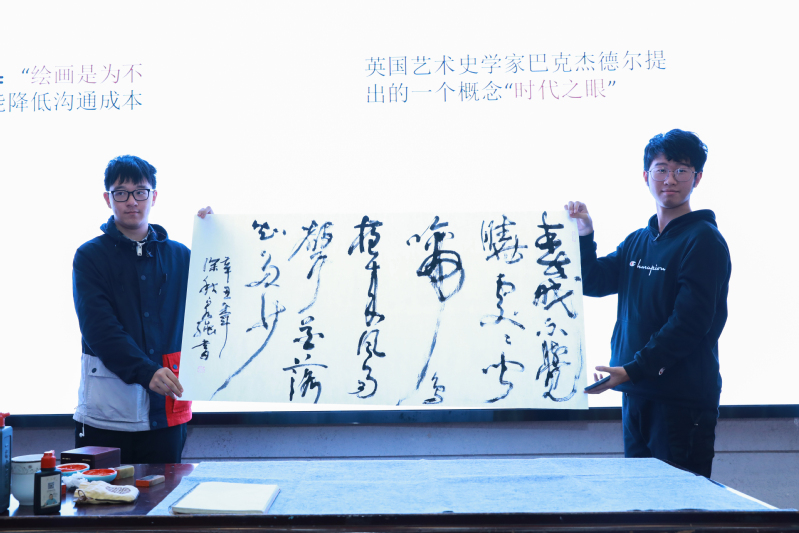 ：“绘画是为不
能降低沟通成本
英国艺术史学家巴克杰德尔提
出的一个概念“时代之眼”
春眠不覺
曉處々聞
啼鳥
夜来風雨
聲花落
知多少
辛丑年
深秋書
Champion